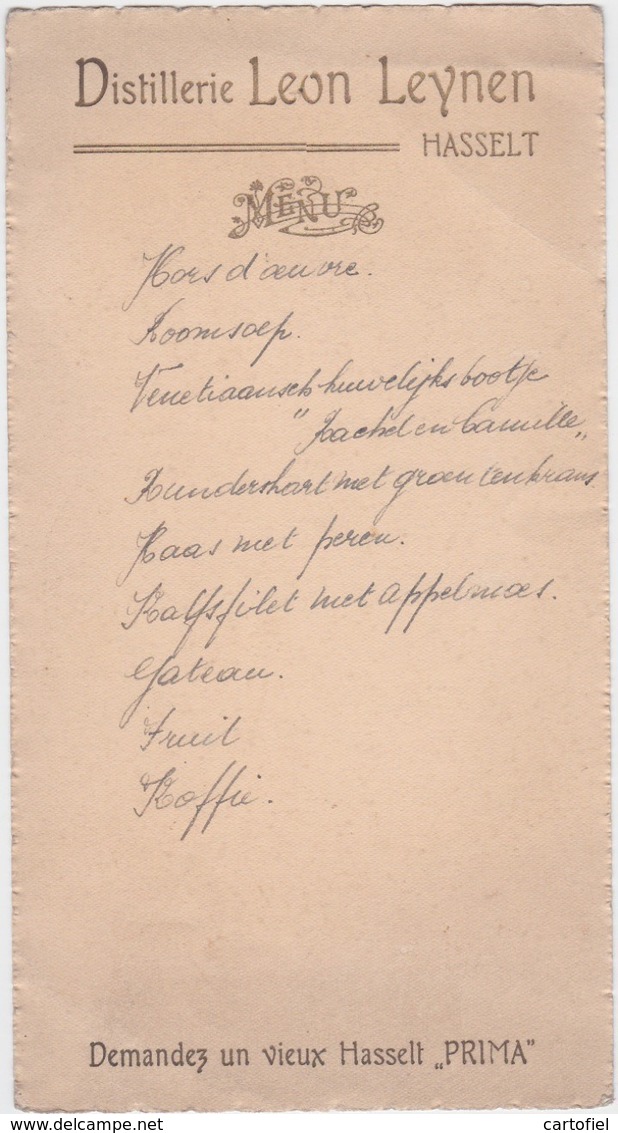 Distillerie Leon Leynen
HASSELT
MENU
Hors d'œuvre.
Roomsoep.
Venetiaansch huwelijksbootje
"Rachel en Camille„
Rundershart met groentenkrans
Haas met peren.
Kalfsfilet met appelmoes.
Gateau.
Fruit
Koffie.
Demandez un vieux Hasselt „PRIMA"
www.delcampe.net
cartofiel